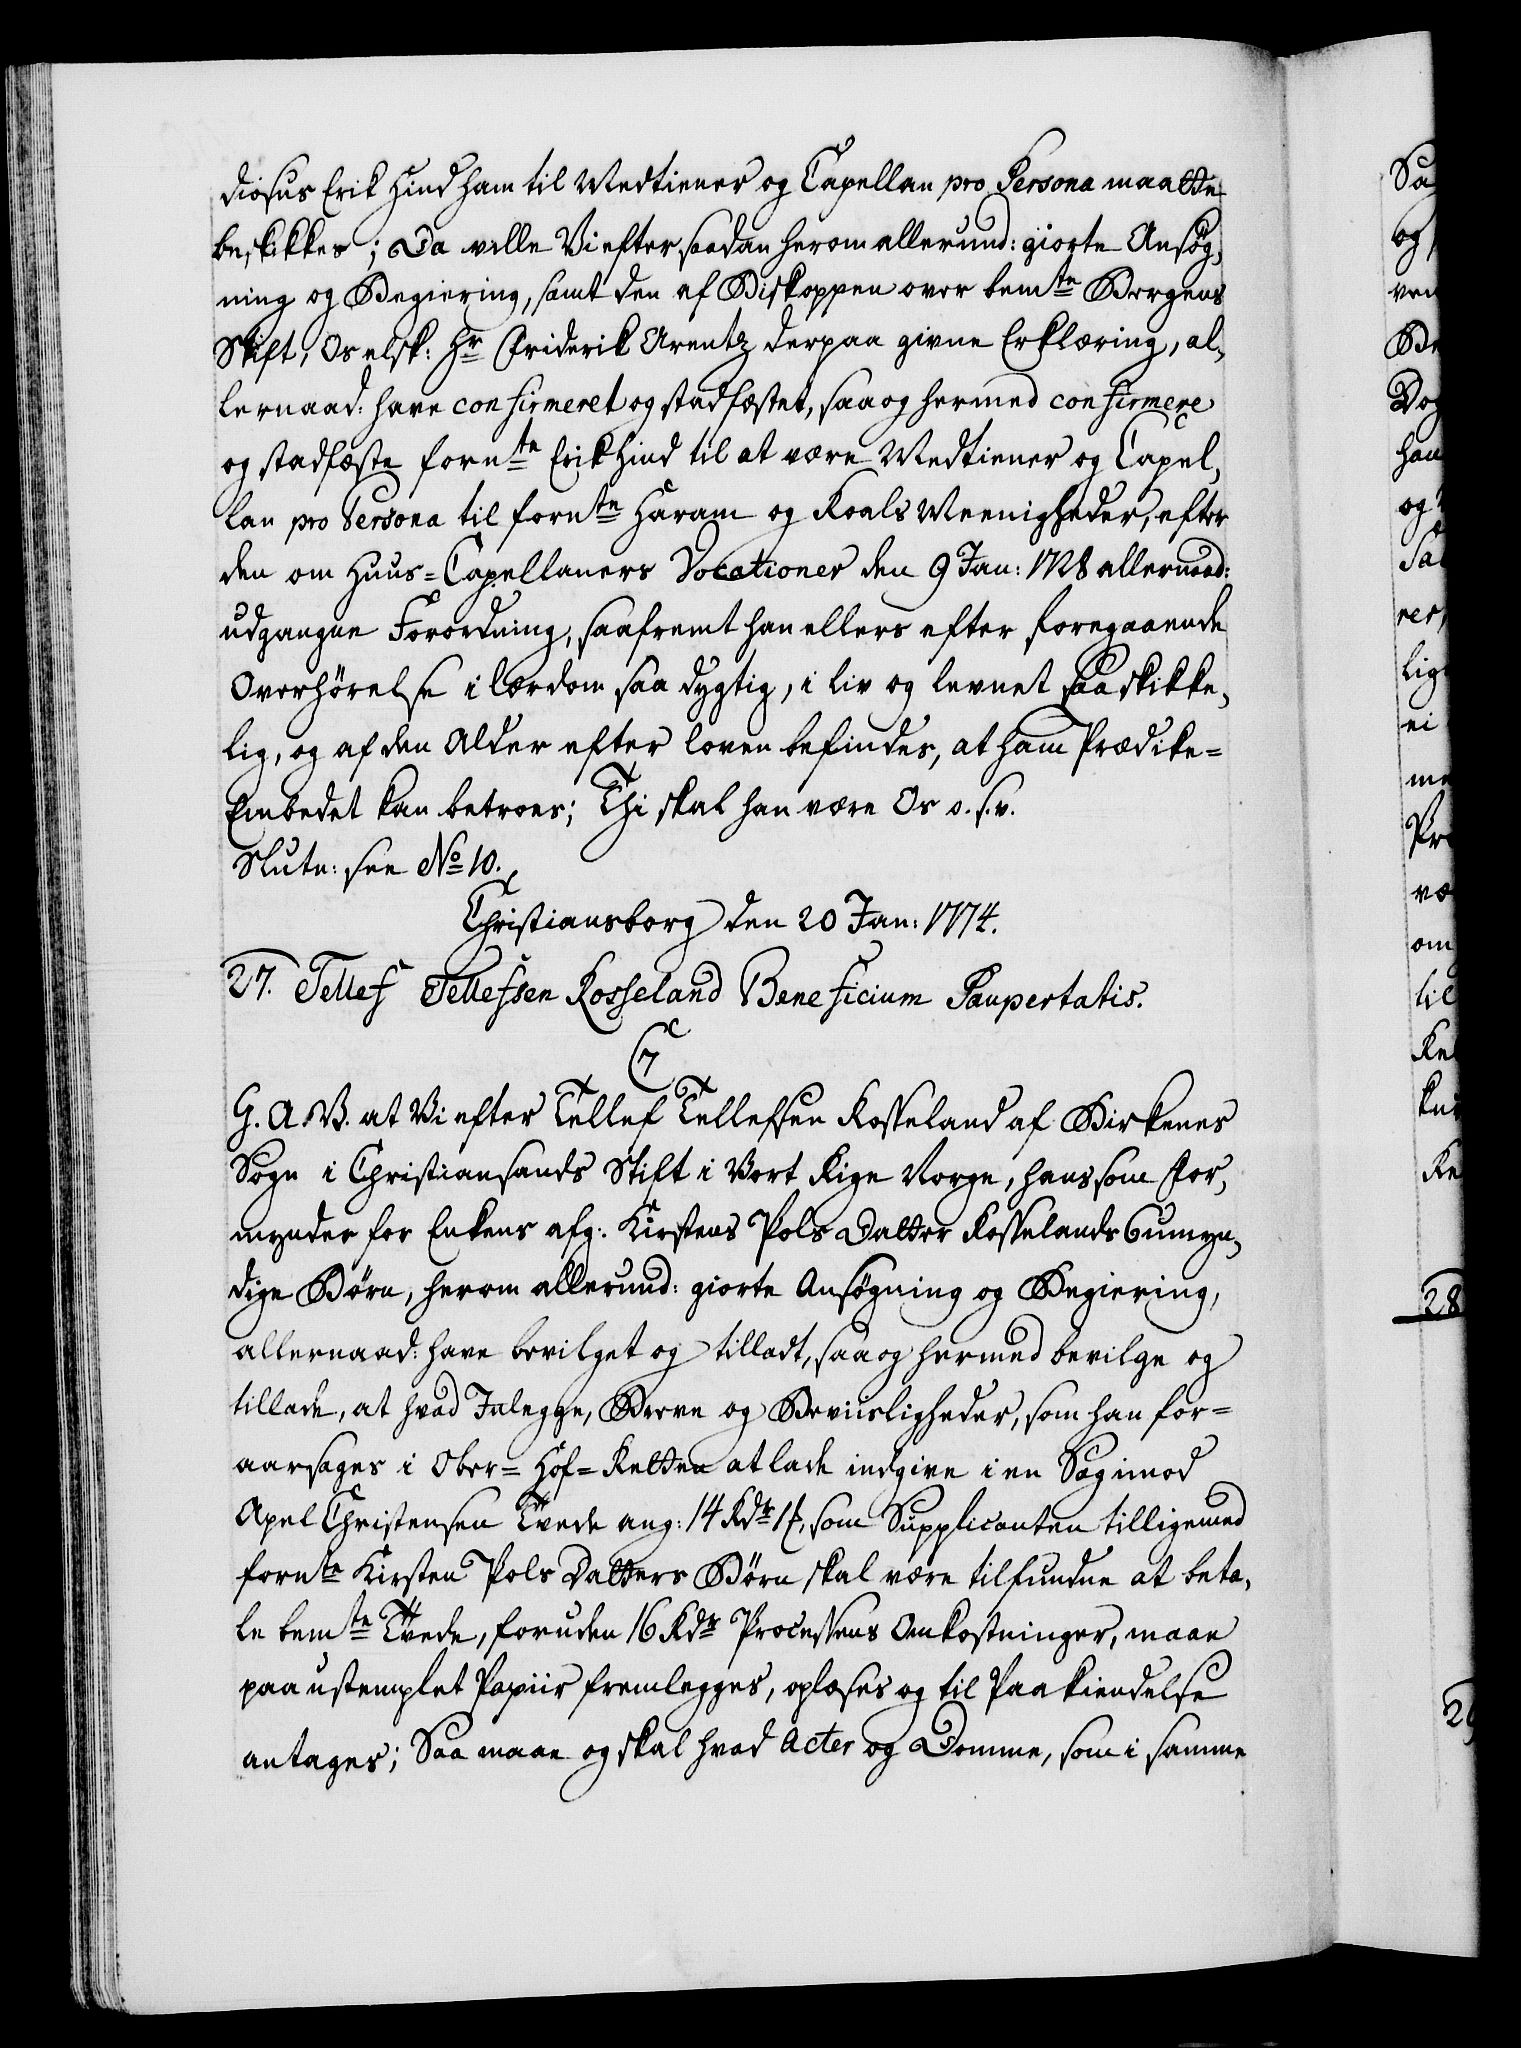 diosus Erik Hind ham til Medtiener og Capellan pro Persona maatte
beskikkes; Da ville Vi efter saadan herom allerund: giorte Ansøg,
ning og Begiering, samt den af Biskoppen over bemte Bergens
Stift, Os elsk: Hr Friderik Arentz derpaa givne Erklæring, al,
lernaad: have confirmeret og stadfæstet, saa og hermed confirmere
og stadfæste fornte Erik Hind til at være Medtiener og Capel,
lan pro Persona til fornte Haram og Roals Meenigheder, efter
den om Huus-Capellaners Vocationer den 9 Jan: 1728 allernaad:
udgangne Forordning, saafremt han ellers efter foregaaende
Overhørelse i lærdom saa dygtig, i liv og levnet saa skikke,
lig, og af den Alder efter loven befindes, at ham Prædike-
Embedet kan betroes; Thi skal han være Os o.s.v.
Slutn: see No 10.
Christiansborg den 20 Jan: 1774.
27. Tellef Tellefsen Rosseland Beneficium Paupertatis.
C7
G. A. V. at Vi efter Tellef Tellefsen Rosseland af Birkenes
Sogn i Christiansands Stift i Vort Rige Norge, hans som For,
mynder for Enkens afg: Kirstens Pols Datter Rosselands 6 umyn,
dige Børn, herom allerund: giorte Ansøgning og Begiering,
allernaad: have bevilget og tilladt, saa og hermed bevilge og
tillade, at hvad Inlegge, Breve og Beviisligheder, som han for-
aarsages i Ober-Hof-Retten at lade indgive i en Sag imod
Apel Christensen Tvede ang: 14 Rdr 1 , som Supplicanten tilligemed
fornte Kirsten Pols Datters Børn skal være tilfundne at beta,
le bemte Tvede, foruden 16 Rdr Processens Omkostninger, maae
paa ustemplet Papiir fremlegges, oplæses og til Paakiendelse
antages; Saa maae og skal hvad Acter og Domme, som i samme